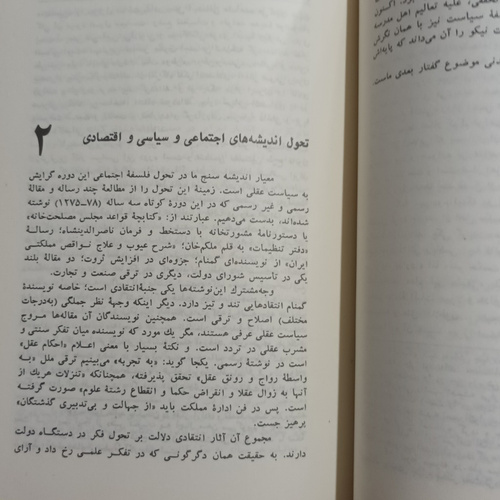 تحققی، علیه تعالیم اهل مدرسه
سیاست نیز با همان نگرش
نیکو را آن می‌داند که پایه‌اش
موضوع گفتار بعدی ماست
۲
تحول اندیشه‌های اجتماعی و سیاسی و اقتصادی
معیار اندیشه سنج ما در تحول فلسفهٔ اجتماعی این دوره گرایش
به سیاست عقلی است. زمینهٔ این تحول را از مطالعهٔ چند رساله و مقالهٔ
رسمی و غیر رسمی که در این دورهٔ کوتاه سه ساله (۷۸ـ۱۲۷۵) نوشته
شده‌اند، بدست می‌دهیم. عبارتند از: «کتابچهٔ قواعد مجلس مصلحت‌خانه»
با دستورنامهٔ مشورتخانه با دستخط و فرمان ناصرالدینشاه؛ رسالهٔ
«دفتر تنظیمات» به قلم ملکم‌خان؛ «شرح عیوب و علاج نواقص مملکتی
ایران» از نویسنده‌ای گمنام؛ جزوه‌ای در افزایش ثروت؛ دو مقالهٔ بلند
یکی در تأسیس شورای دولت، دیگری در ترقی صنعت و تجارت.
وجه‌مشترك این‌نوشته‌ها یکی جنبهٔ‌انتقادی است؛ خاصه نویسندهٔ
گمنام انتقادهایی تند و تیز دارد. دیگر اینکه وجههٔ نظر جملگی (به‌درجات
مختلف) اصلاح و ترقی است. همچنین نویسندگان آن مقاله‌ها مروج
سیاست عقلی عرفی هستند، مگر یك مورد که نویسنده میان تفکر سنتی و
مشرب عقلی در تردد است. و نکتهٔ بسیار با معنی اعلام «احکام عقل»
است در نوشتهٔ رسمی. یکجا گوید: «به تجربه» می‌بینیم ترقی ملل «به
واسطهٔ رواج و رونق عقل» تحقق پذیرفته، همچنانکه «تنزلات هریك از
آنها به زوال عقلا و انقراض حکما و انقطاع رشتهٔ علوم» صورت گرفته
است. پس در فن ادارهٔ مملکت باید «از جهالت و بی‌تدبیری گذشتگان»
پرهیز جست.
مجموع آن آثار انتقادی دلالت بر تحول فکر در دستگاه دولت
دارند. به حقیقت همان دگرگونی که در تفکر علمی رخ داد و آرای